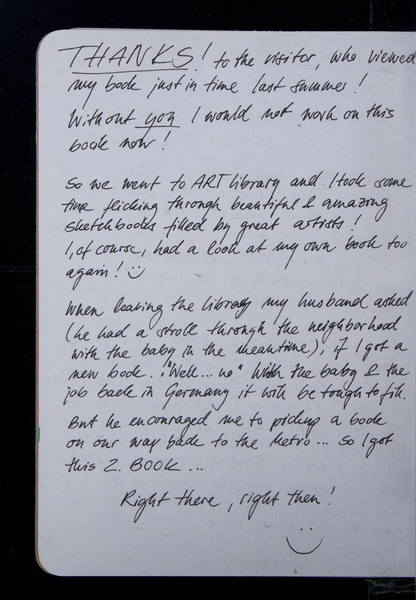 THANKS! to the visitor, who viewed
my book just in time last summer!
Without you I would not work on this
book now!
So we went to ART library and I took some
time flicking through beautiful & amazing
sketchbooks filled by great artists!
I, of course, had a look at my own book too
again!
When leaving the library my husband asked
(he had a stroll through the neighborhood
with the baby in the meantime), if I got a
new book. "Well... no" With the baby & the
job back in Germany it will be tough to fill.
But he encouraged me to pick up a book
on our way back to the Metro... So I got
this 2. BOOK...
Right there, right then!